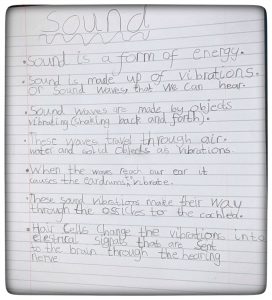 Sound
• Sound is a form of energy.
• Sound is made up of vibrations.
or sound waves that we can hear.
• Sound waves are made by objects
vibrating (shaking back and forth).
• These waves travel through air.
water and solid objects as vibrations.
• When the waves reach our ear it
causes the eardrums vibrate.
• These sound vibrations make their way
through the osikles to the cochlea.
• Hair Cells Change the vibrations into
eletrical signals that are sent
to the brain through the hearing
nerve